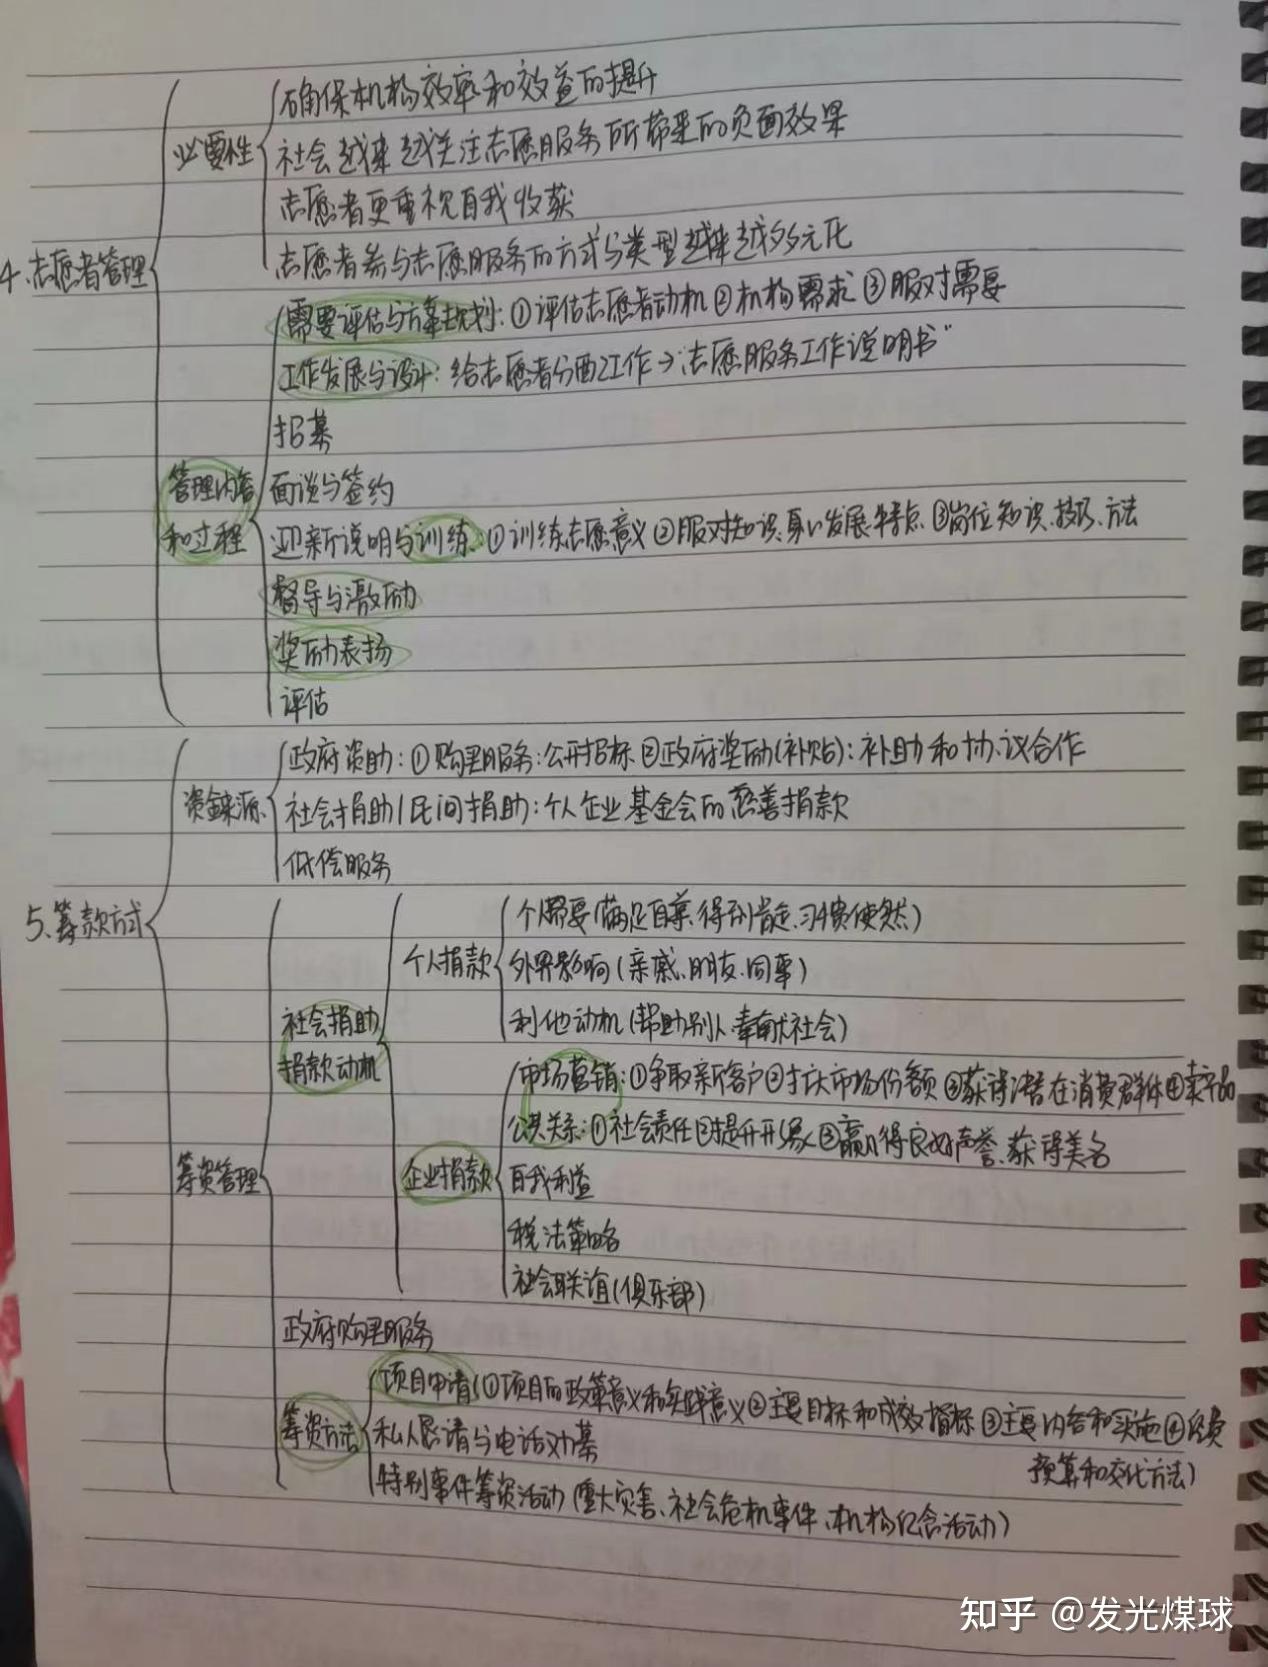 确保机构效率和效益的提升
必要性
社会越来越关注志愿服务所带来的负面效果
志愿者更重视自我收获
4.志愿者管理
志愿者参与志愿服务的方式与类型越来越多元化
需要评估与方案规划:①评估志愿者动机②机构需求③服对需要
工作发展与设计:给志愿者分配工作→"志愿服务工作说明书"
招募
管理内容
和过程
面谈与签约
迎新说明与训练:①训练志愿意义②服对知识、身心发展特点③岗位知识、技巧、方法
督导与激励
奖励表扬
评估
政府资助:①购买服务:公开招标②政府奖励(补贴):补助和协议合作
资金来源
社会捐助/民间捐助:个人企业基金会的慈善捐款
低偿服务
5.筹款方式
个人需要(满足自尊、得到肯定、习惯使然)
个人捐款
外界影响(亲戚、朋友、同事)
社会捐助
捐款动机
利他动机(帮助别人、奉献社会)
市场营销:①争取新客户②扩大市场份额③获得潜在消费群体④卖产品
公共关系:①社会责任②提升形象③赢得良好声誉、获得美名
筹资管理
企业捐款
自我利益
税法策略
社会联谊(俱乐部)
政府购买服务
项目申请(①项目的政策意义和实践意义②主要目标和成效指标③主要内容和实施④经费
预算和交代方法)
筹资方法
私人恳请与电话劝募
特别事件筹资活动(重大灾害、社会危机事件、机构纪念活动)
知乎 @发光煤球